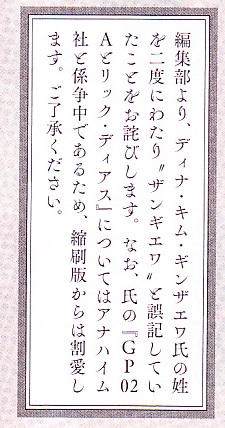 編集部より、ディナ・キム・ギンザエワ氏の姓
を二度にわたり〝ザンギエワ〟と誤記してい
たことをお詫びします。なお、氏の『GP02
Aとリック・ディアス』についてはアナハイム
社と係争中であるため、縮刷版からは割愛し
ます。ご了承ください。